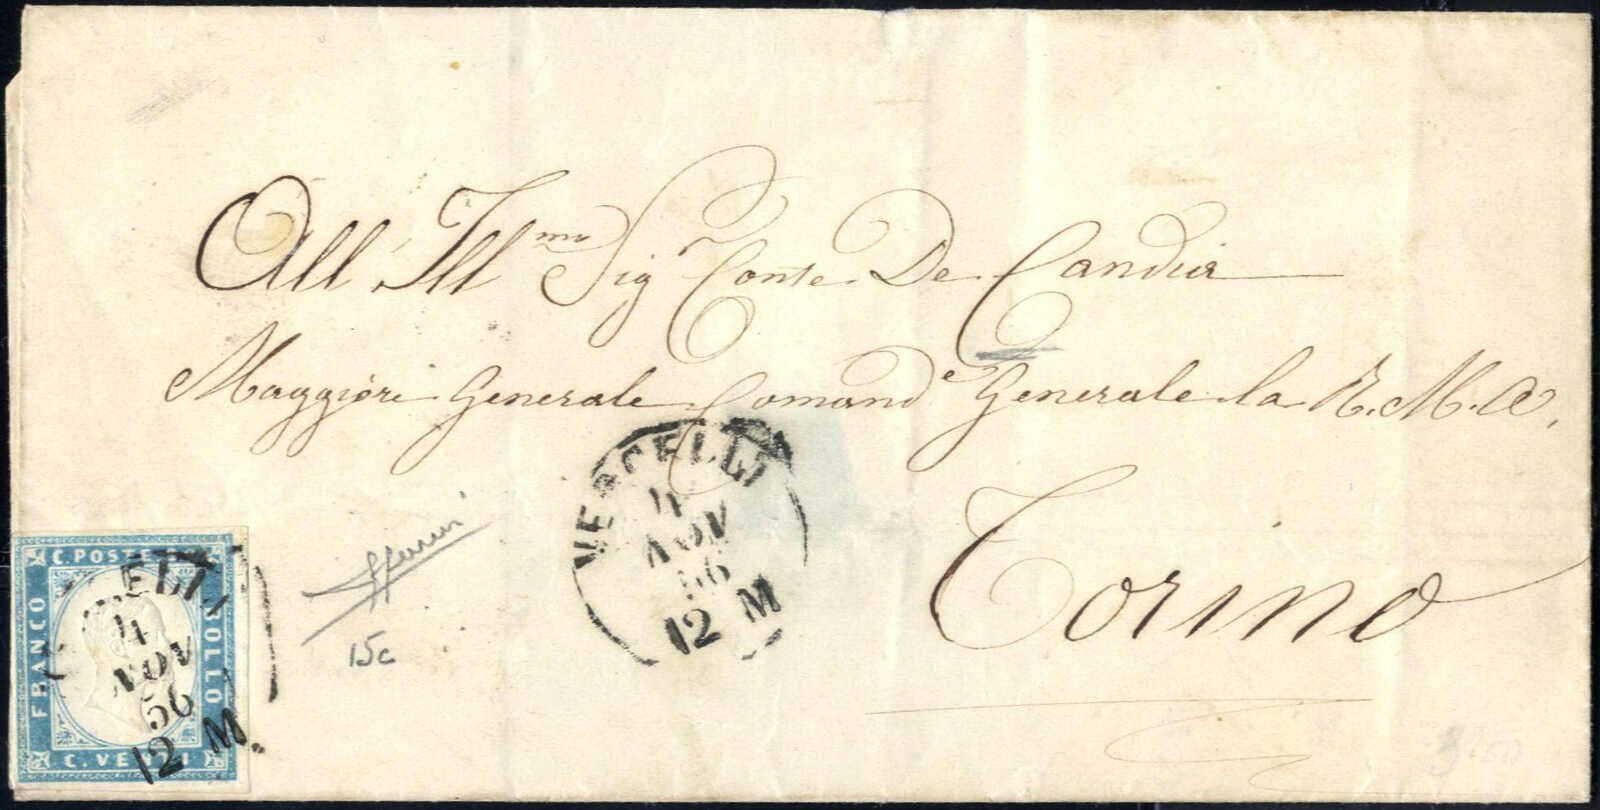 All' Ill.mo Sig Conte De Candia
Maggiore Generale Comand.e Generale la R. M. A.
Torino
VERCELLI
4
NOV
56
12 M
C. POSTE
FRANCO
BOLLO
C. VENTI
ELLI
4
NOV
56
12 M
15c